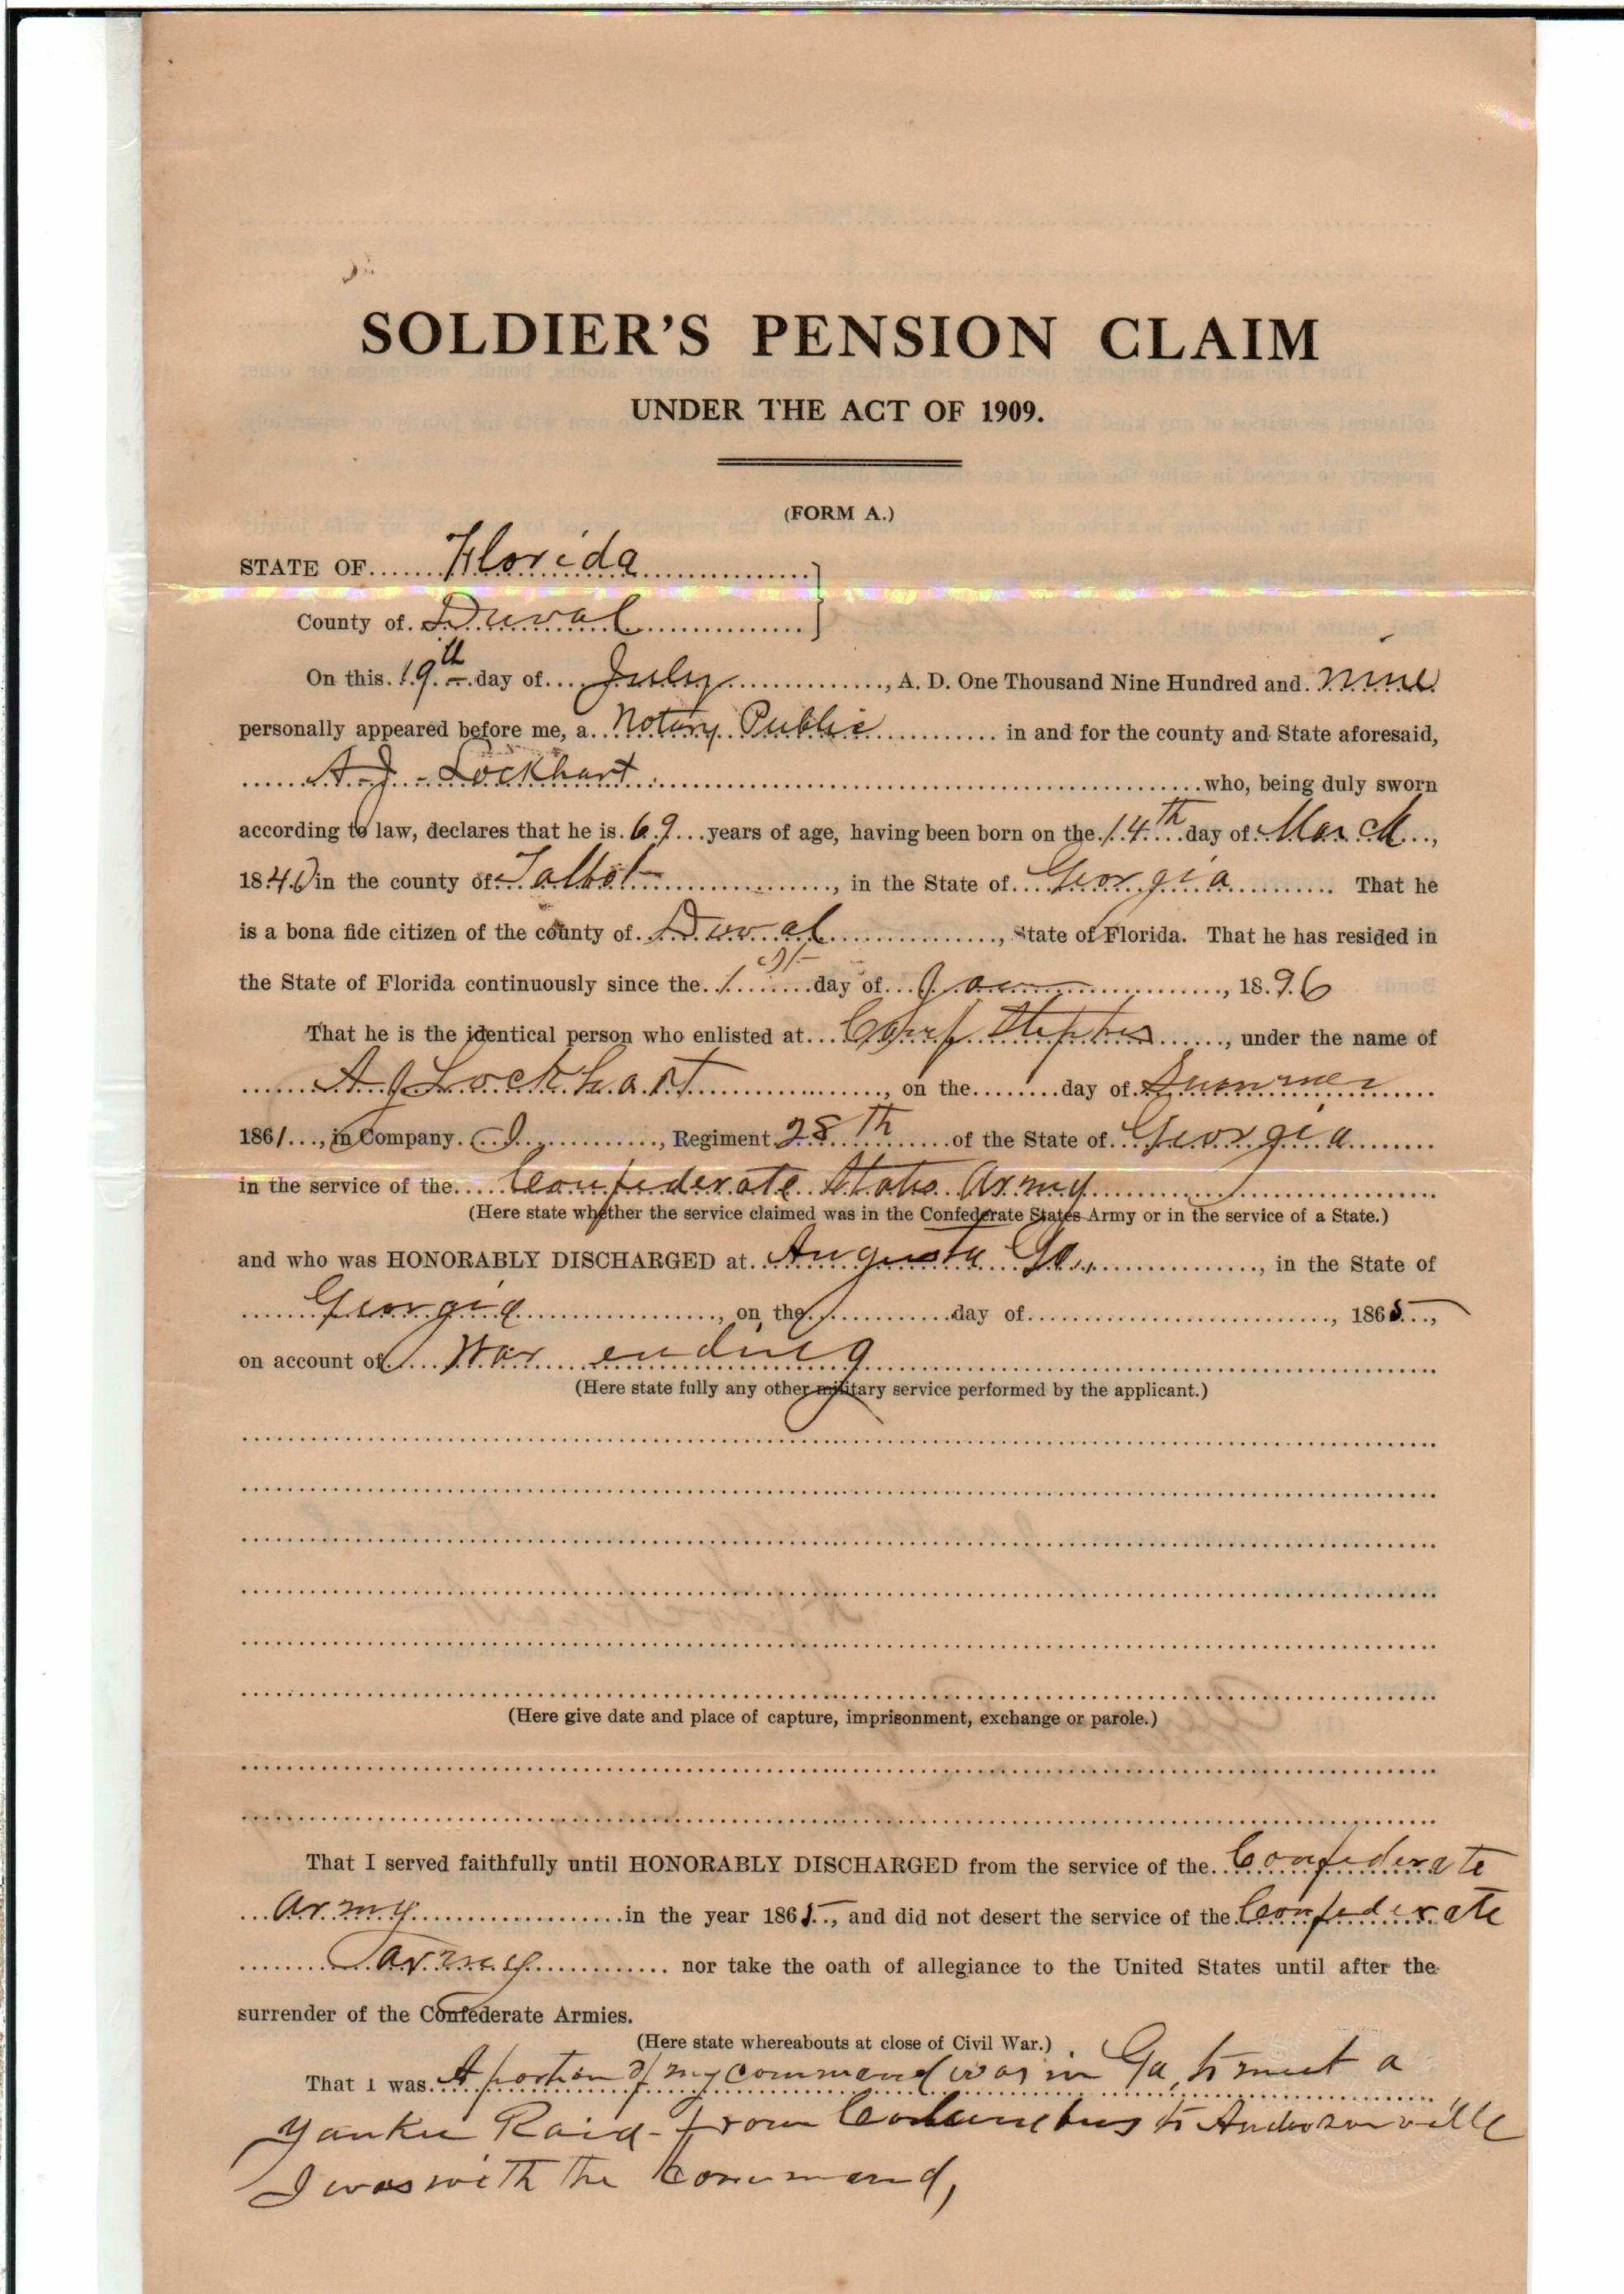 SOLDIER'S PENSION CLAIM
UNDER THE ACT OF 1909.
(FORM A.)
STATE OF Florida
County of Duval
On this 19th day of July, A. D. One Thousand Nine Hundred and nine
personally appeared before me, a Notary Public in and for the county and State aforesaid,
A. J. Lockhart who, being duly sworn
according to law, declares that he is 69 years of age, having been born on the 14th day of March,
1840 in the county of Talbot, in the State of Georgia. That he
is a bona fide citizen of the county of Duval, State of Florida. That he has resided in
the State of Florida continuously since the 1st day of Jan, 1896
That he is the identical person who enlisted at Camp Stephens, under the name of
A J Lockhart, on the day of Summer
1861, in Company I, Regiment 28th of the State of Georgia
in the service of the Confederate States Army
(Here state whether the service claimed was in the Confederate States Army or in the service of a State.)
and who was HONORABLY DISCHARGED at Augusta Ga., in the State of
Georgia, on the day of, 1865,
on account of War ending
(Here state fully any other military service performed by the applicant.)
(Here give date and place of capture, imprisonment, exchange or parole.)
That I served faithfully until HONORABLY DISCHARGED from the service of the Confederate
Army in the year 1865, and did not desert the service of the Confederate
army nor take the oath of allegiance to the United States until after the
surrender of the Confederate Armies.
(Here state whereabouts at close of Civil War.)
That I was A portion of my command was in Ga, to meet a
Yankee Raid - from Columbus to Andersonville
I was with the command,